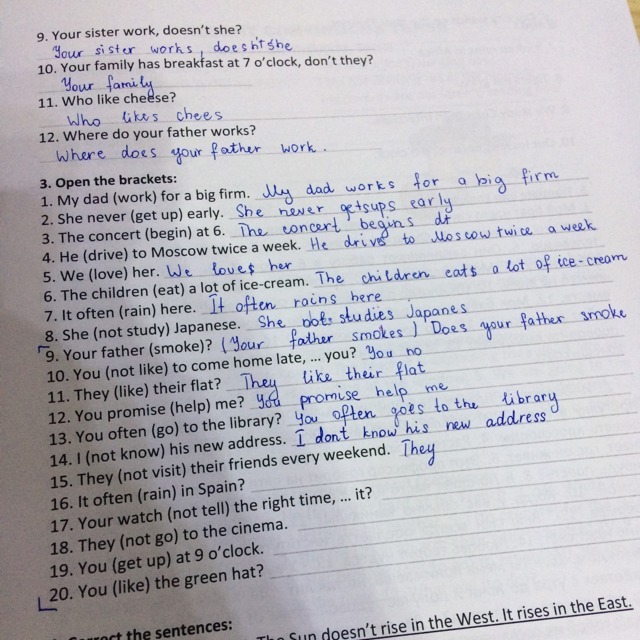 9. Your sister work, doesn't she?
Your sister works, doesn't she
10. Your family has breakfast at 7 o'clock, don't they?
Your family
11. Who like cheese?
Who likes chees
12. Where do your father works?
Where does your father work.
3. Open the brackets:
1. My dad (work) for a big firm. My dad works for a big firm
2. She never (get up) early. She never getsups early
3. The concert (begin) at 6. The concert begins at
4. He (drive) to Moscow twice a week. He drives to Moscow twice a week
5. We (love) her. We loves her
6. The children (eat) a lot of ice-cream. The children eats a lot of ice-cream
7. It often (rain) here. It often rains here
8. She (not study) Japanese. She studies Japanes
9. Your father (smoke)? (Your father smokes) Does your father smoke
10. You (not like) to come home late, ... you? You no
11. They (like) their flat? They like their flat
12. You promise (help) me? You promise help me
13. You often (go) to the library? You often goes to the library
14. I (not know) his new address. I dont know his new address
15. They (not visit) their friends every weekend. They
16. It often (rain) in Spain?
17. Your watch (not tell) the right time, ... it?
18. They (not go) to the cinema.
19. You (get up) at 9 o'clock.
20. You (like) the green hat?
Correct the sentences:
The Sun doesn't rise in the West. It rises in the East.